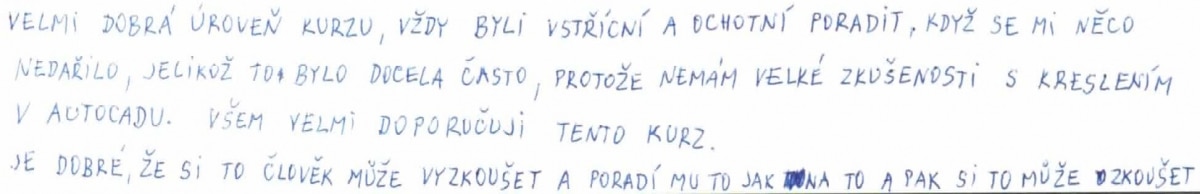 VELMI DOBRÁ ÚROVEŇ KURZU, VŽDY BYLI VSTŘÍCNÍ A OCHOTNÍ PORADIT, KDYŽ SE MI NĚCO
NEDAŘILO, JELIKOŽ TO BYLO DOCELA ČASTO, PROTOŽE NEMÁM VELKÉ ZKUŠENOSTI S KRESLENÍM
V AUTOCADU. VŠEM VELMI DOPORUČUJI TENTO KURZ.
JE DOBRÉ, ŽE SI TO ČLOVĚK MŮŽE VYZKOUŠET A PORADÍ MU TO JAK NA TO A PAK SI TO MŮŽE OZKOUŠET